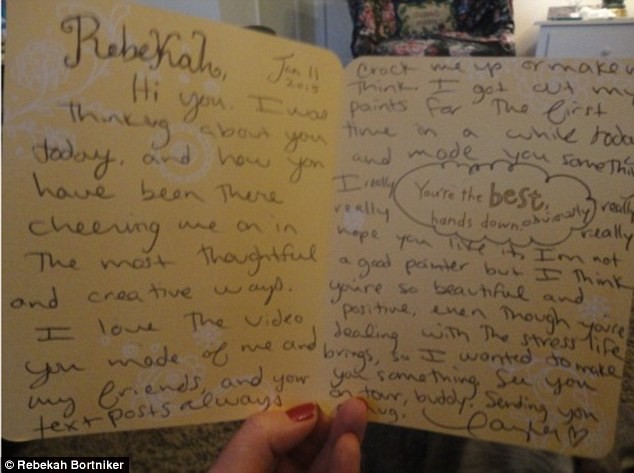 Rebekah,
Jan 11
2015
Hi you. I was
thinking about you
today, and how you
have been there
cheering me on in
the most thoughtful
and creative ways.
I love the video
you made of me and
my friends, and your
text posts always
crack me up or make
think. I got out my
paints for the first
time in a while today
and made you somethin
I really
really
You're the best,
hands down, obviously
really
really
hope you like it. I'm not
a good painter but I think
you're so beautiful and
positive, even though you're
dealing with the stress life
brings, so I wanted to make
you something. See you
on tour, buddy. Sending you
hug.
© Rebekah Bortniker